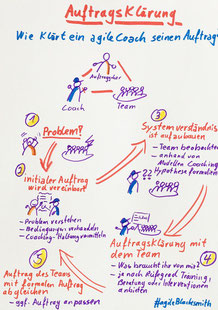 Auftragsklärung
Wie klärt ein agile Coach seinen Auftrag
Auftraggeber
Coach
Team
1
Problem?
2
Initialer Auftrag
wird vereinbart
- Problem verstehen
- Bedingungen verhandeln
- Coaching-Haltung vermitteln
3
Systemverständnis
ist aufzubauen
- Team beobachten
- anhand von
Modellen Coaching
Hypothese formulieren
Auftragsklärung mit
dem Team
4
- Was braucht ihr von mir?
- je nach Reifegrad Training,
Beratung oder Interventionen
anbieten
5
Auftrag des Teams
mit formalen Auftrag
abgleichen
- ggf. Auftrag anpassen
#agileBlacksmith